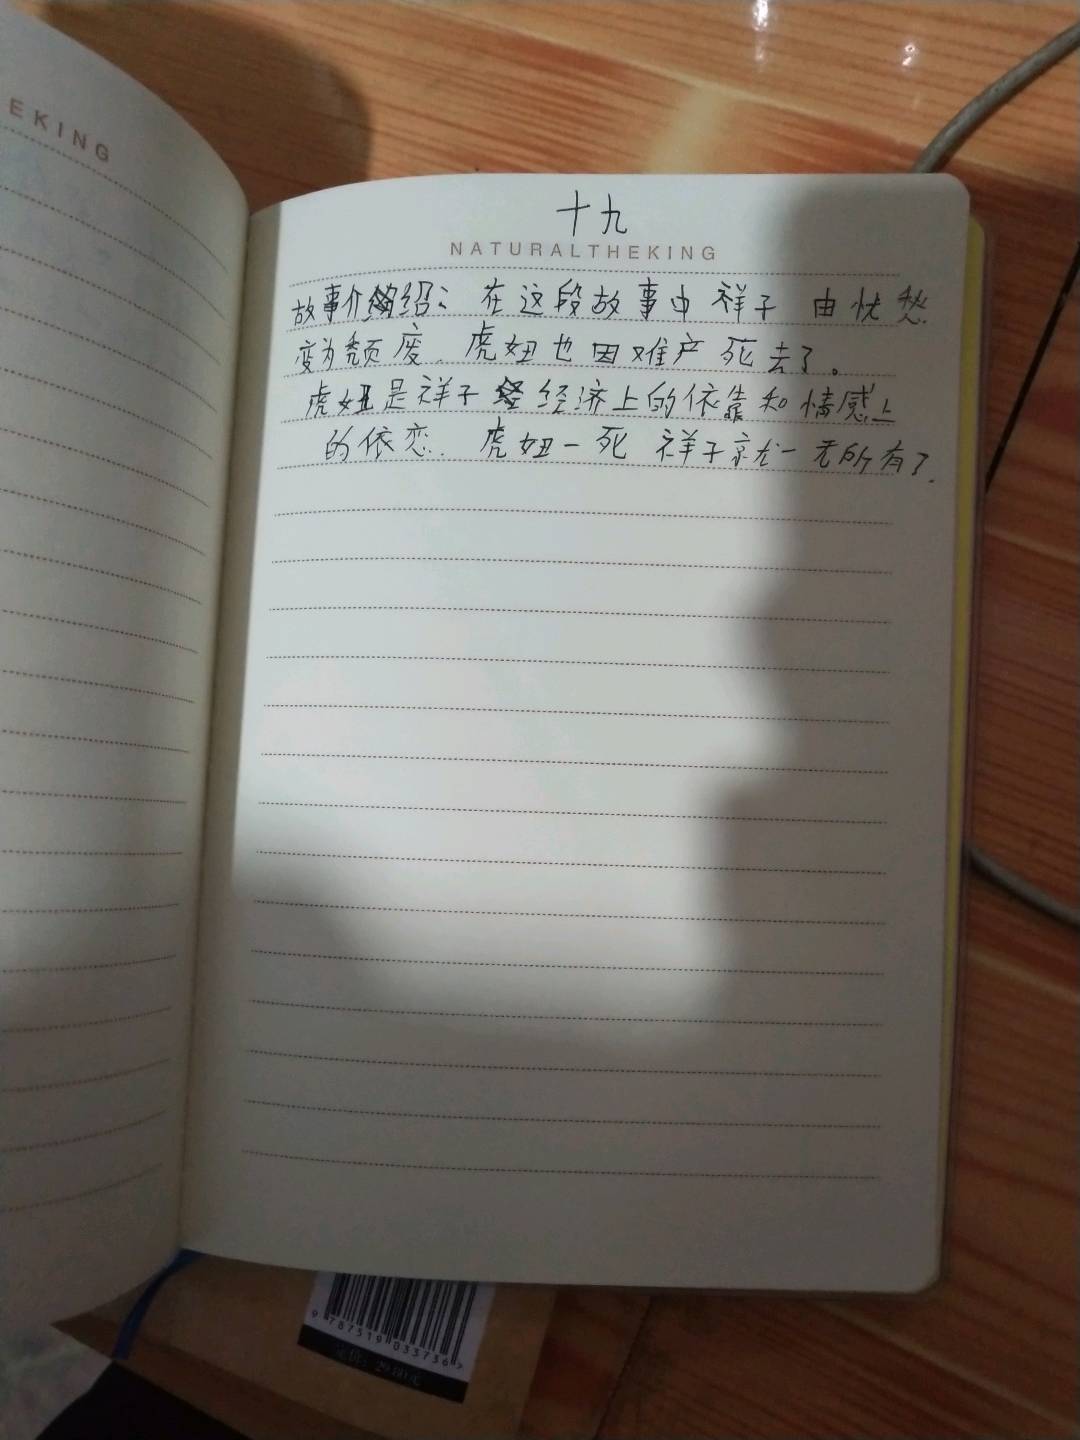 EKING
十九
NATURALTHEKING
故事介绍：在这段故事中祥子 由忧愁
变为颓废．虎妞也因难产死去了。
虎妞是祥子经济上的依靠和情感上
的依恋．虎妞一死 祥子就一无所有了．
9 787519 033736 >
定价：29.80元